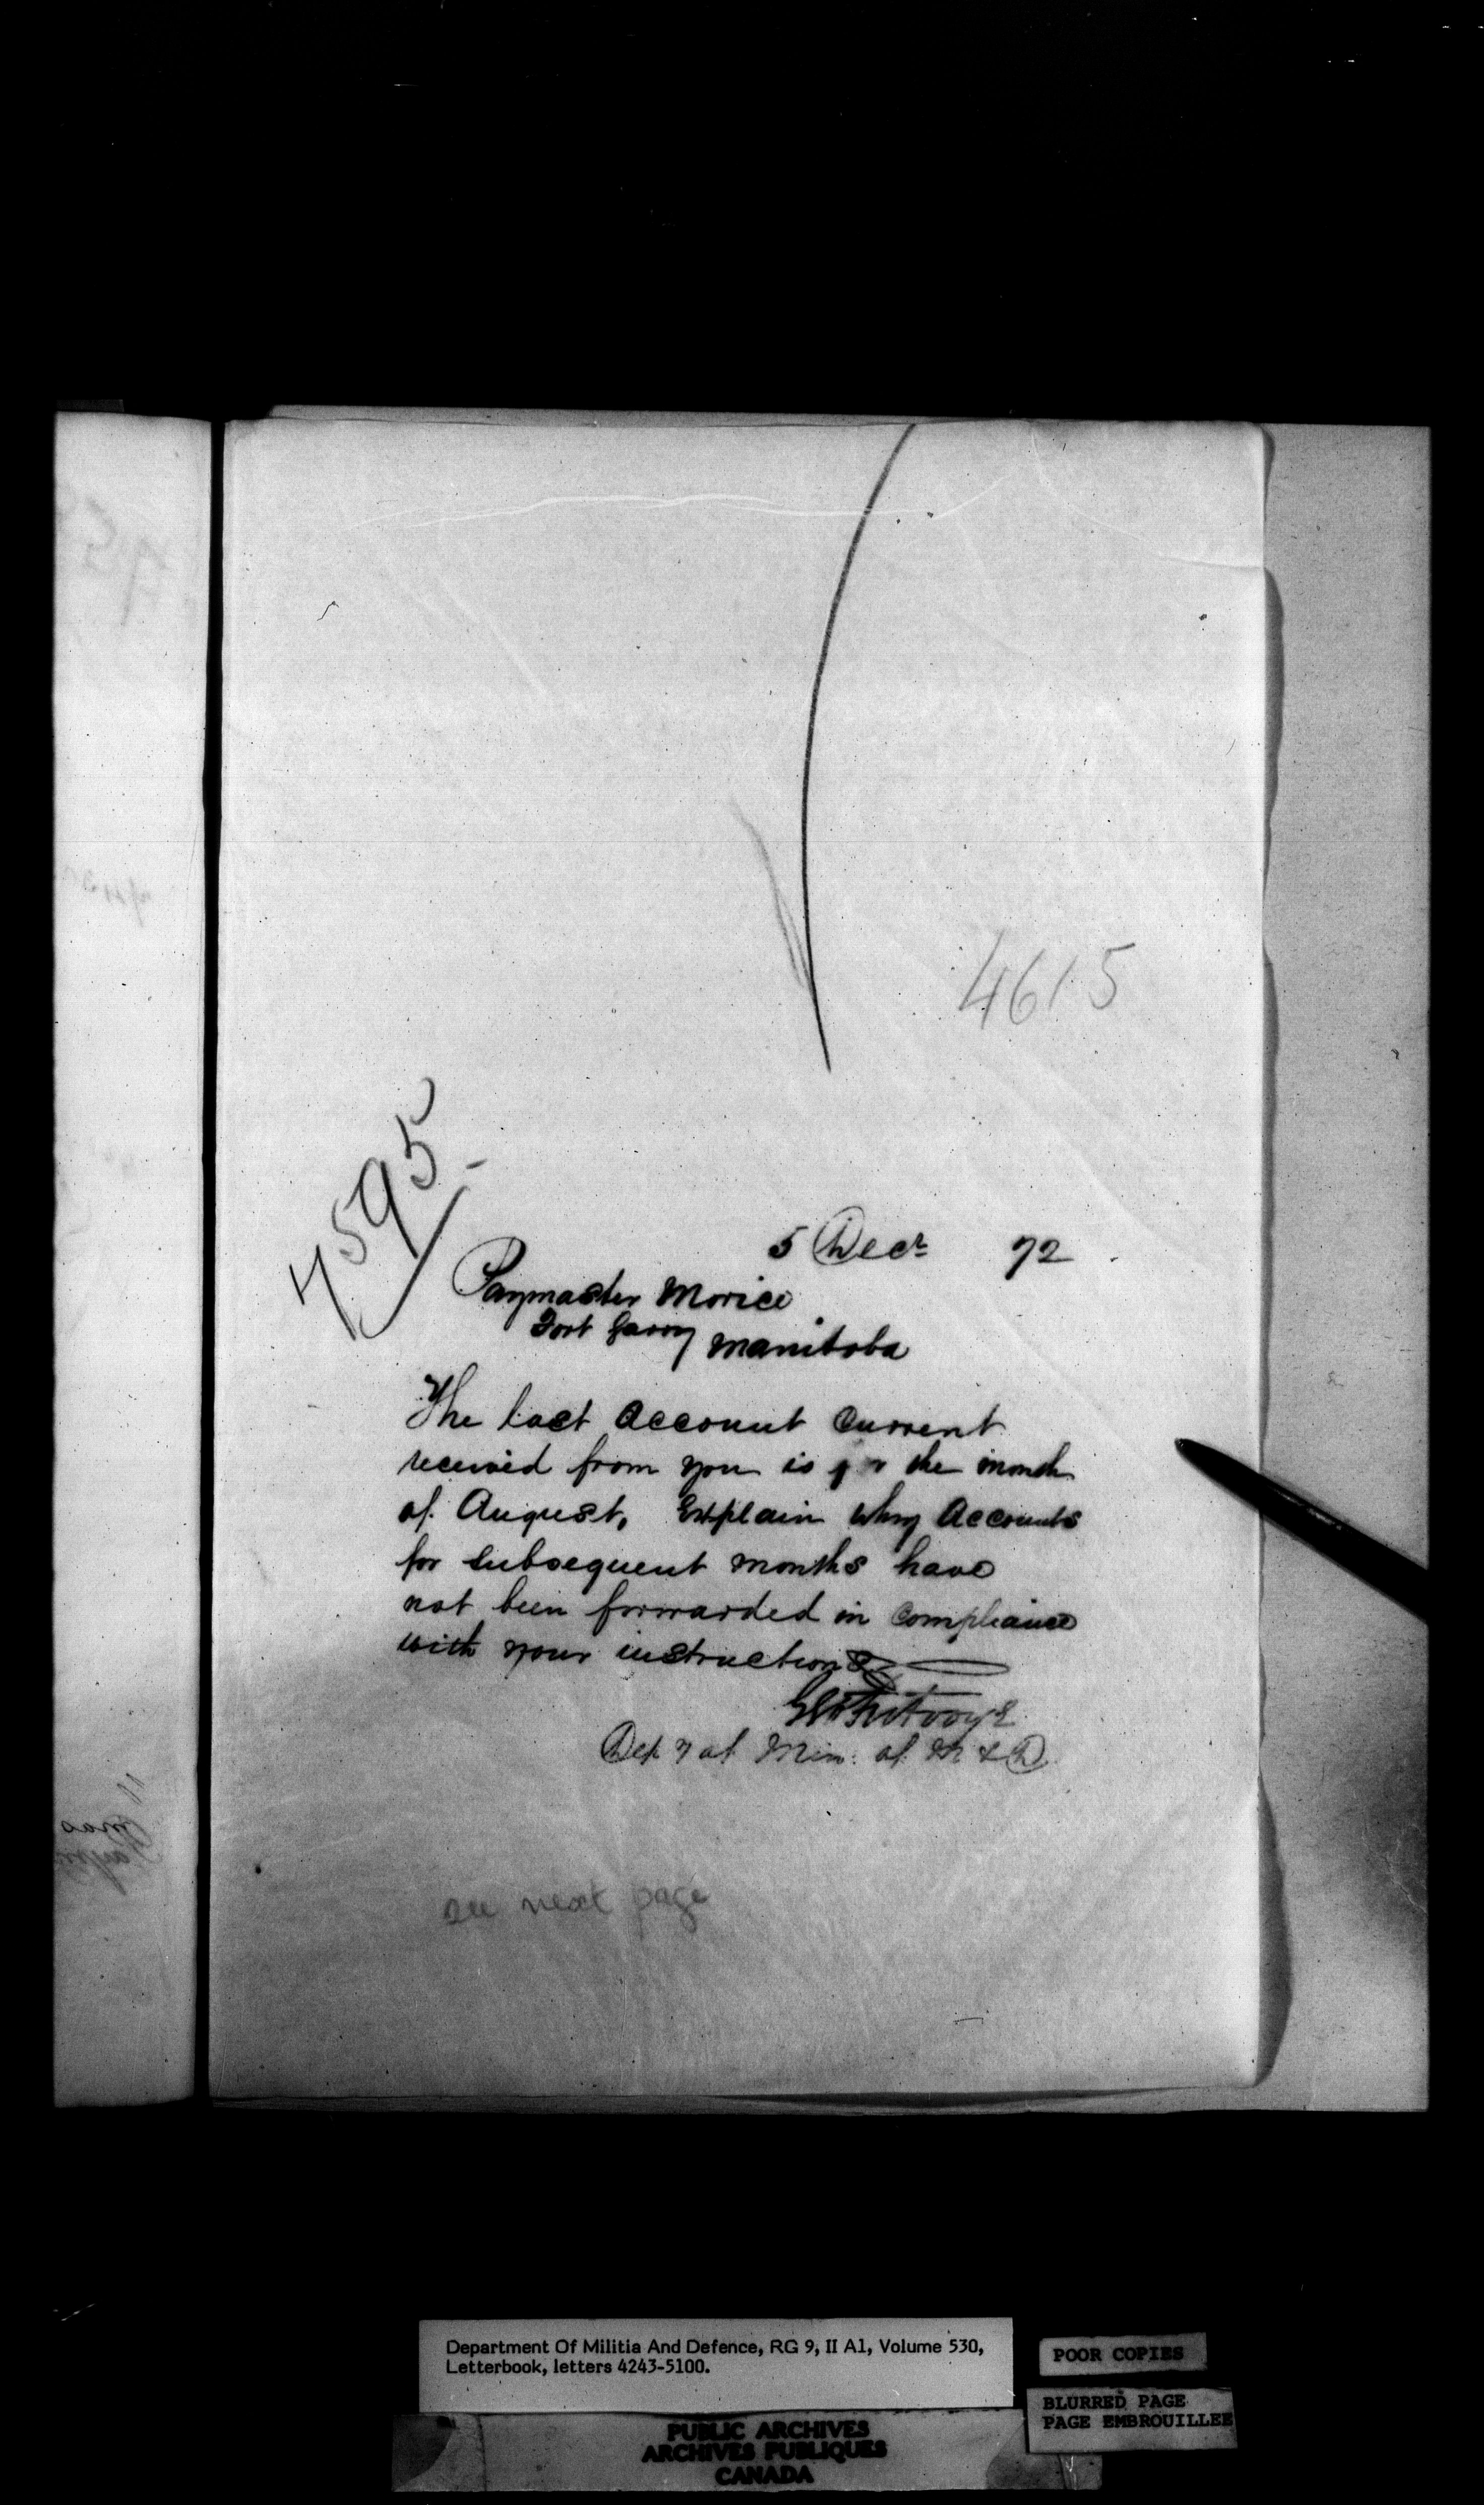 4615
7595-
5 Decr 72
Paymaster Morice
Fort Garry Manitoba
The last Account Current
received from you is for the month
of August, Explain why Accounts
for subsequent months have
not been forwarded in compliance
with your instructions
Dep of Min: of M & D.
see next page
Department Of Militia And Defence, RG 9, II A1, Volume 530,
Letterbook, letters 4243-5100.
POOR COPIES
BLURRED PAGE
PAGE EMBROUILLEE
PUBLIC ARCHIVES
ARCHIVES PUBLIQUES
CANADA